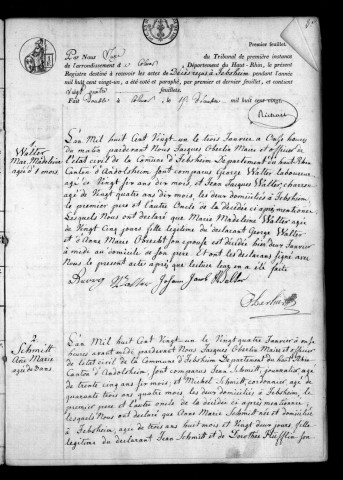 Premier feuillet.
Par Nous du Tribunal de première instance
de l'arrondissement d Département du Haut-Rhin, le présent
Registre destiné à recevoir les actes de Décès reçus à Jebsheim pendant l'année
mil huit cent vingt-un, a été coté et paraphé, par premier et dernier feuillet, et contient
Vingt quatre
Fait double à Colmar, le mil huit cent vingt.
Walter
Marie Madeleine
L'an Mil huit Cent Vingt-un le trois Janvier a Onze heures
du matin pardevant Nous Jacques Oberlin Maire et officier de
l'état civil de la Commune d'Jebsheim Departement du haut Rhin
Canton d'Andolsheim sont comparus George Walter laboureur
agé de Vingt six ans dix mois, et Jean Jacques Walter, charron
agé de Vingt quatre ans dix mois, les deux domiciliés à Jebsheim,
le premier pere et l'autre Oncle de la décédée ci après mentionnée,
Lesquels Nous ont déclaré que Marie Madeleine Walter agée
de Vingt Cinq jours fille legitime du declarant George Walter
et d'Anne Marie Obrecht son epouse est décédée hier deux Janvier
à midi au domicile de son pere. Et ont les declarans signé avec
Nous le present acte après que lecture leur en a été faite
Walter Johann Jacob Walter
Oberlin
2.
Schmitt
Anne Marie
agée de 3 ans.
L'an Mil huit Cent Vingt-un le Vingt quatre Janvier à onze
heures avant midi pardevant Nous Jacques Oberlin Maire et officier
de l'état civil de la Commune d'Jebsheim Departement du haut Rhin
Canton d'Andolsheim, sont comparus Jean Schmitt, journalier agé
de trente cinq ans six mois, et Michel Schmitt, cordonnier agé de
quarante trois ans quatre mois, les deux domiciliés à Jebsheim, le
premier pere et l'autre oncle de la décédée ci après mentionnée,
Lesquels Nous ont déclaré que Anne Marie Schmitt née et domiciliée
à Jebsheim, agée de trois ans huit mois et Vingt deux jours, fille
legitime du declarant Jean Schmitt et de Dorothée son